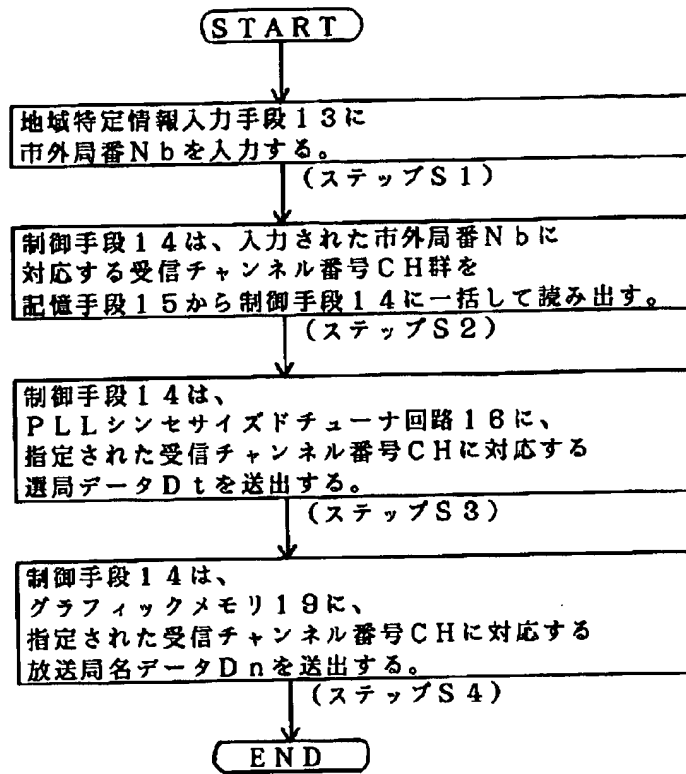 START
地域特定情報入力手段13に
市外局番Nbを入力する。
(ステップS1)
制御手段14は、入力された市外局番Nbに
対応する受信チャンネル番号CH群を
記憶手段15から制御手段14に一括して読み出す。
(ステップS2)
制御手段14は、
PLLシンセサイズドチューナ回路16に、
指定された受信チャンネル番号CHに対応する
選局データDtを送出する。
(ステップS3)
制御手段14は、
グラフィックメモリ19に、
指定された受信チャンネル番号CHに対応する
放送局名データDnを送出する。
(ステップS4)
END